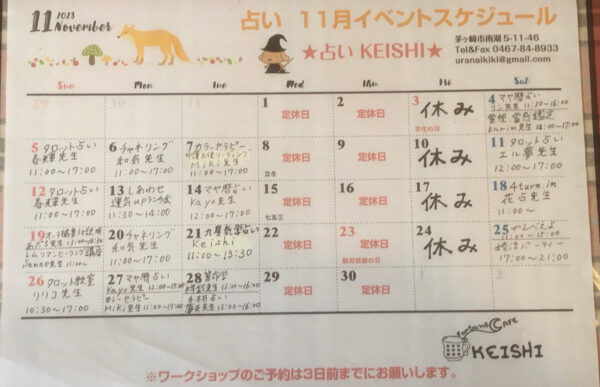 11 2023
November
占い 11月イベントスケジュール
★占い KEISHI★
茅ヶ崎市南湖 5-11-46
Tel&Fax 0467-84-8933
uranaikiki@gmail.com
Sun Mon Tue Wed Thu Fri Sat
29 30 31 1 定休日 2 定休日 3 休み 文化の日
4 マヤ暦占い
リン先生 11:30~16:00
霊視 霊感鑑定
Karin先生 12:00~17:00
5 タロット占い
春輝先生
11:00~17:00
6 チャネリング
和気先生
11:00~17:00
7 カラーセラピー
Miki先生
11:00~17:00
8 定休日 立冬
9 定休日
10 休み
11 タロット占い
エル夢先生
12:00~17:00
12 タロット占い
春輝先生
11:00~17:00
13 しあわせ
運気upランチ会
11:30~14:00
14 マヤ暦占い
Kayo先生
12:00~17:00
15 定休日 七五三
16 定休日
17 休み
18 4turn.in
花占先生
11:00~
19
13:00~16:00
レムリアンヒーリング講座
11:00~15:00
20 チャネリング
和気先生
11:00~17:00
21 九星気学占い
Keishi
11:00~13:30
22 定休日
23 定休日 勤労感謝の日
24 休み
25 やんべえよ
11:00~15:00
婚活パーティー
17:00~21:00
26 タロット教室
リリコ先生
10:30~17:00
27 マヤ暦占い
Kayo先生 12:00~17:00
カラーセラピー
Miki先生 11:00~17:00
28 算命学
13:00~16:00
11:00~16:00
29 定休日
30 定休日
1 2
Fortune Cafe
KEISHI
※ワークショップのご予約は3日前までにお願いします。